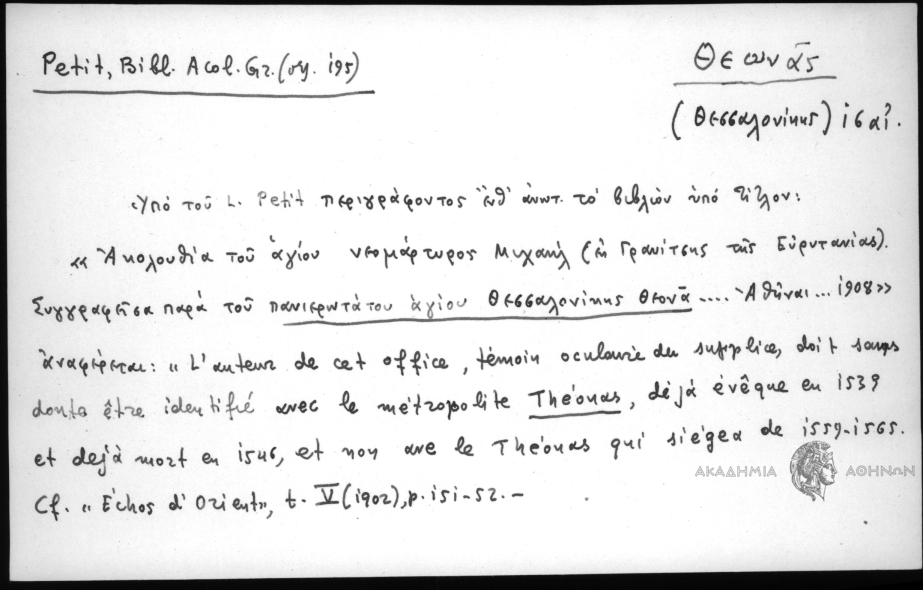 Petit, Bibl. Acol. Gr. (σγ. 195)
Θεωνᾶς
(Θεσσαλονίκης) ις αἰ.
Ὑπό τοῦ L. Petit περιγράφοντος ἔνθ' ἀνωτ. τό βιβλίον ὑπό τίτλον:
« Ἀκολουθία τοῦ ἁγίου νεομάρτυρος Μιχαήλ (ἐκ Γρανίτσης τῆς Εὐρυτανίας).
Συγγραφεῖσα παρά τοῦ πανιερωτάτου ἁγίου Θεσσαλονίκης Θεονᾶ .... Ἀθῆναι ... 1908»
ἀναφέρεται: « L'auteur de cet office, témoin oculaire du supplice, doit sans
doute être identifié avec le métropolite Théonas, déjà évêque en 1539
et dejà mort en 1546, et non ave le Théonas qui siégea de 1559-1565.
Cf. « Échos d'Orient», t. V (1902), p. 151-52.-
ΑΚΑΔΗΜΙΑ ΑΘΗΝΩΝ